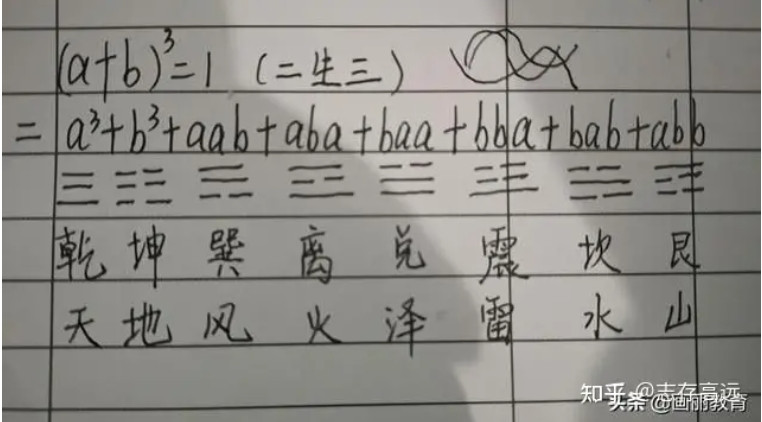 (a+b)³=1 (二生三)
= a³+b³+aab+aba+baa+bba+bab+abb
☰ ☷ ☴ ☲ ☱ ☳ ☵ ☶
乾 坤 巽 离 兑 震 坎 艮
天 地 风 火 泽 雷 水 山
知乎 @志存高远
头条 @画丽教育